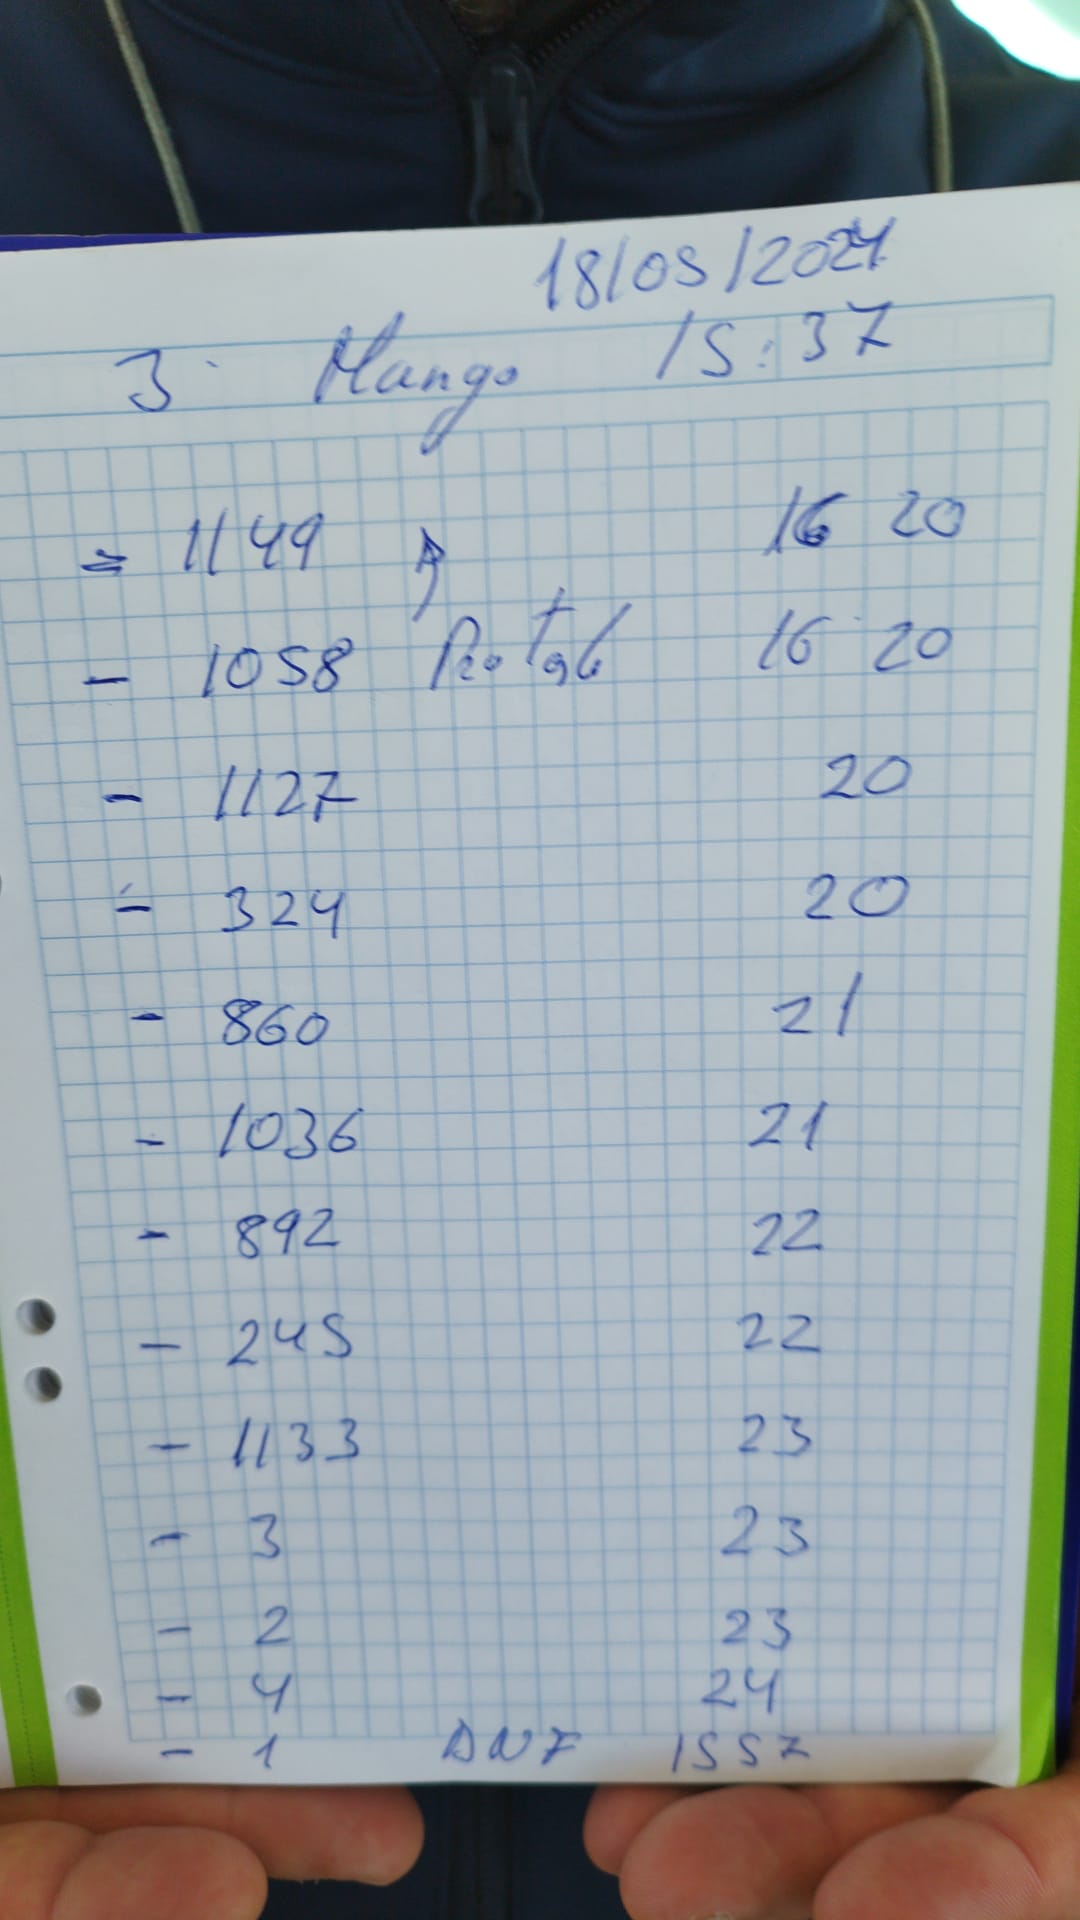 18/05/2024
3 Mango 15:37
= 1149 16 20
- 1058 16 20
- 1127 20
- 324 20
- 860 21
- 1036 21
- 892 22
- 245 22
- 1133 23
- 3 23
- 2 23
- 4 24
- 1 DNF 1557